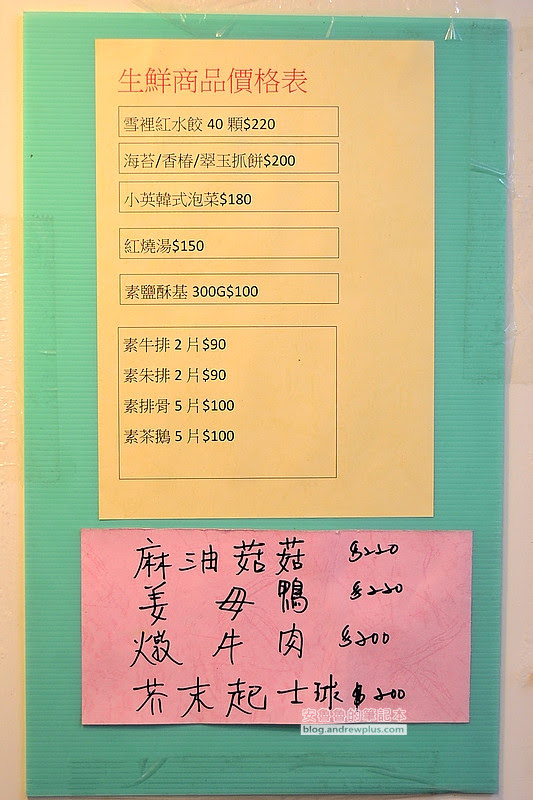 生鮮商品價格表
雪裡紅水餃 40 顆$220
海苔/香椿/翠玉抓餅$200
小英韓式泡菜$180
紅燒湯$150
素鹽酥基 300G$100
素牛排 2 片$90
素朱排 2 片$90
素排骨 5 片$100
素茶鵝 5 片$100
麻油菇菇 $220
姜母鴨 $220
燉牛肉 $200
芥末起士球 $200
安魯魯的筆記本
blog.andrewplus.com